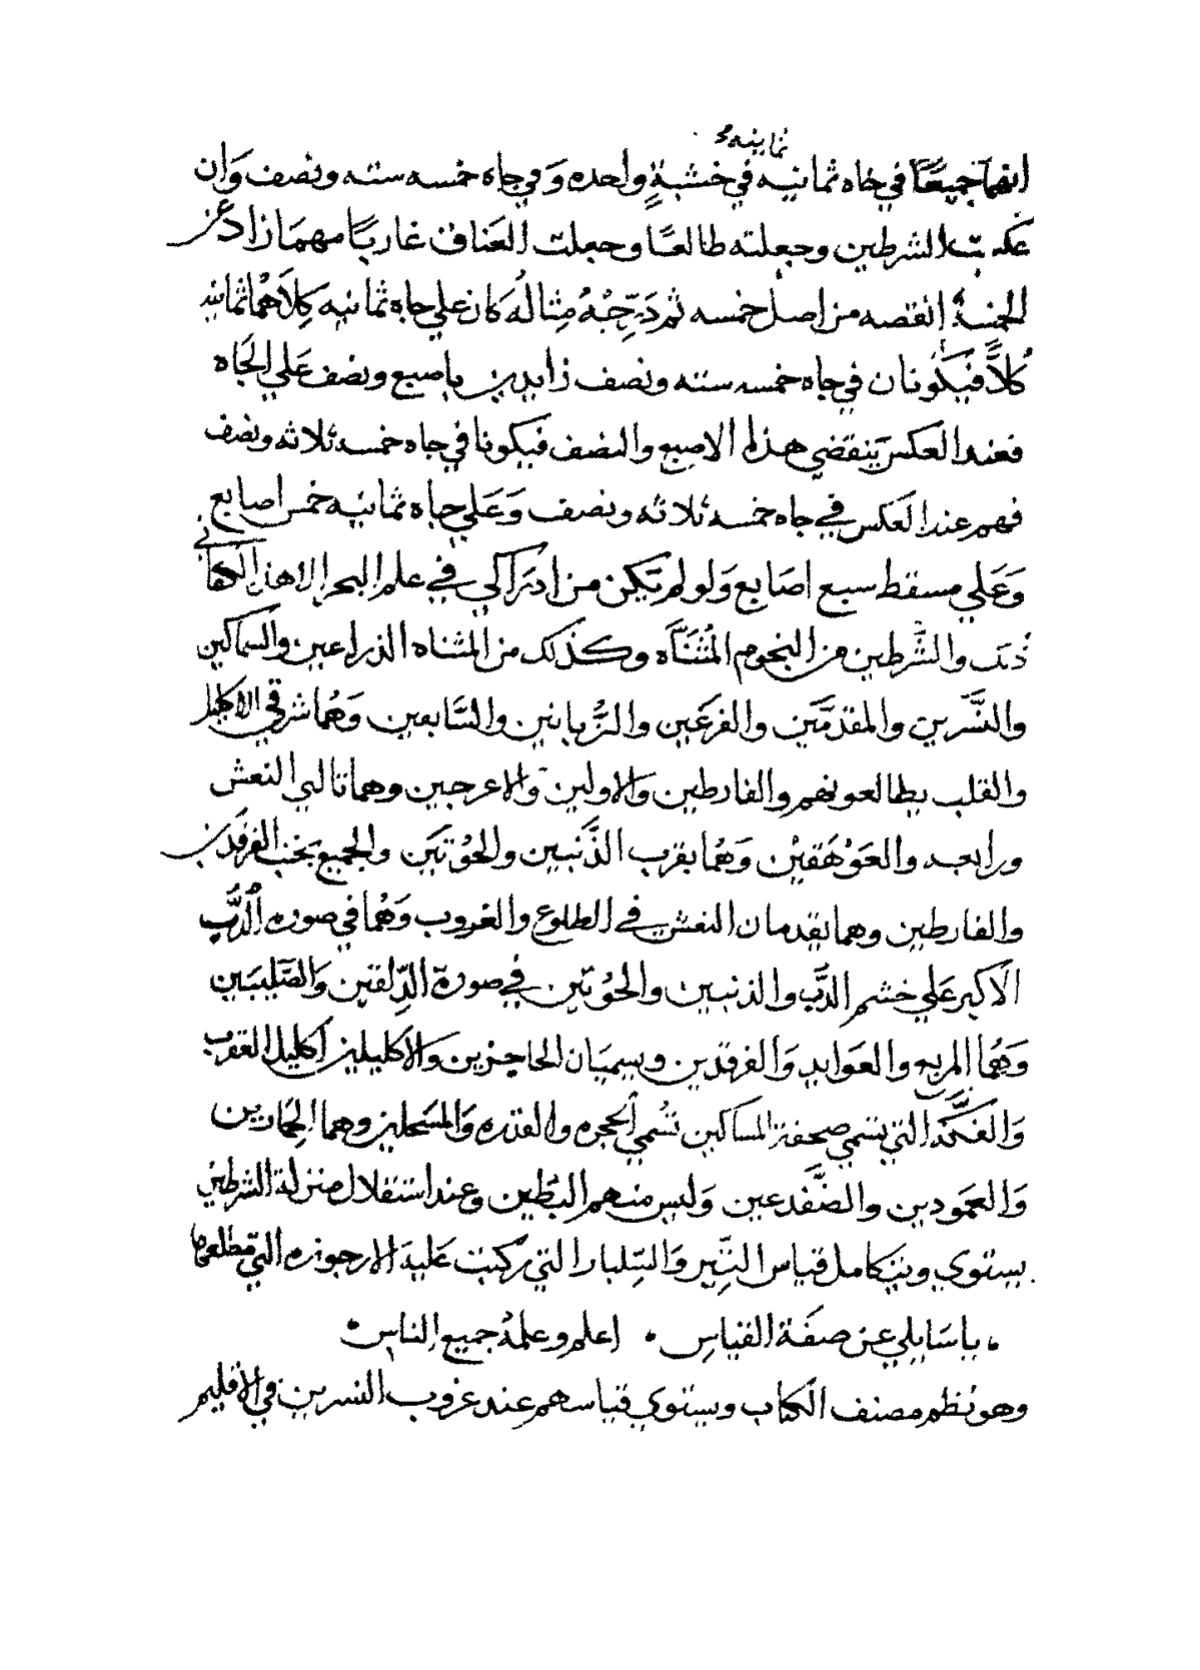 ثمانيه
انهما جميعًا في جاه ثمانيه في خشبةٍ واحده وَفي جاه خمسه سته ونصف وَان
عكست الشرطين وجعلته طالعًا وجعلت العَناق غاربًا مهمَا زاد عن
الخمسة انقصه من اصل خمسه ثم دَرِّجْهُ مِثالُه كان علي جاه ثمانيه كِلَاهُما ثمانيه
كُلاًّ فيَكُونان في جاه خمسه سته ونصف زايدين باصبع ونصف عَلي الجَاه
فعند العَكس ينقضي هذه الاصبع والنصف فيكونا في جاه خمسه ثلاثه ونصف
فهم عند العَكس في جاه خمسه ثلاثه ونصف وَعَلي جاه ثمانيه خمس اصابع
وَعَلي مسقط سبع اصَابع وَلو لم تكن من ادرَاكي في علم البحر الا هذا لكفاني
ذلك والشَّرطين من النجوم المُثنَّاه وكذلك من المثناه الذراعين والسماكين
والنَّسَرين والمقدمَّين والفرعَين والزُّبانين والسَّابعين وَهُما شرقي الاكليل
والقلب يطالعونهم والفارطين وَالاولين وَالاعرجين وهما تالي النعش
ورابعه والعَوْهَقيْن وَهُما بقرب الذَّنبين والحُوْتَين والجميع بجنب الفرقدين
والفارطين وهما يقدمان النعش في الطلوع والغروب وَهُما في صوره الدُّب
الاكبر عَلي خشم الدُّب والذنبين والحُوْتين في صورة الدِّلفين وَالصَّليبَين
وَهُمَا المربع والعَوايد وَالفرقدين ويسميَان الحاجزين وَالاكليلين اكليل العقرب
وَالفكَّه التي تسمي صحفة المساكين تسُمي الحجره والقدره وَالمسَحلين وهما الحِمَارين
وَالعَمودين والضَّفدعين وَليس منهم البُطين وعند استقلال منزلة الشرطين
يستوي ويتكامل قياس النِّير وَالسِّلبار التي ركبت عَليهَ الارجوزه التي مطلعها
يا سَايلي عن صفَة القياسِ اعلم وعلمهُ جميع الناس
وهو نظم مصنف الكتاب ويستوي قياسهم عند غروب النسرين في الاقليم